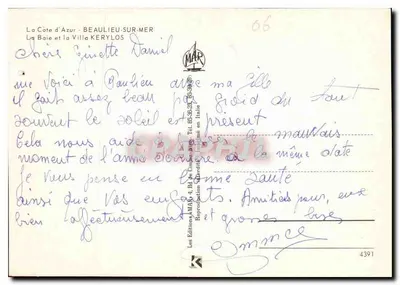 La Côte d'Azur - BEAULIEU-SUR-MER
La Baie et la Villa KERYLOS
06
MAR
chers Ginette Daniel
me voici à Beaulieu avec ma fille
il fait assez beau pas froid du tout
souvent le soleil est présent
Cela nous aide à le mauvais
moment de l'année dernière à la même date
Je vous pense en bonne santé
ainsi que vos enfants. Amitiés pour eux
bien affectueusement et grosses bises
Les Editions «MAR»
4391
K